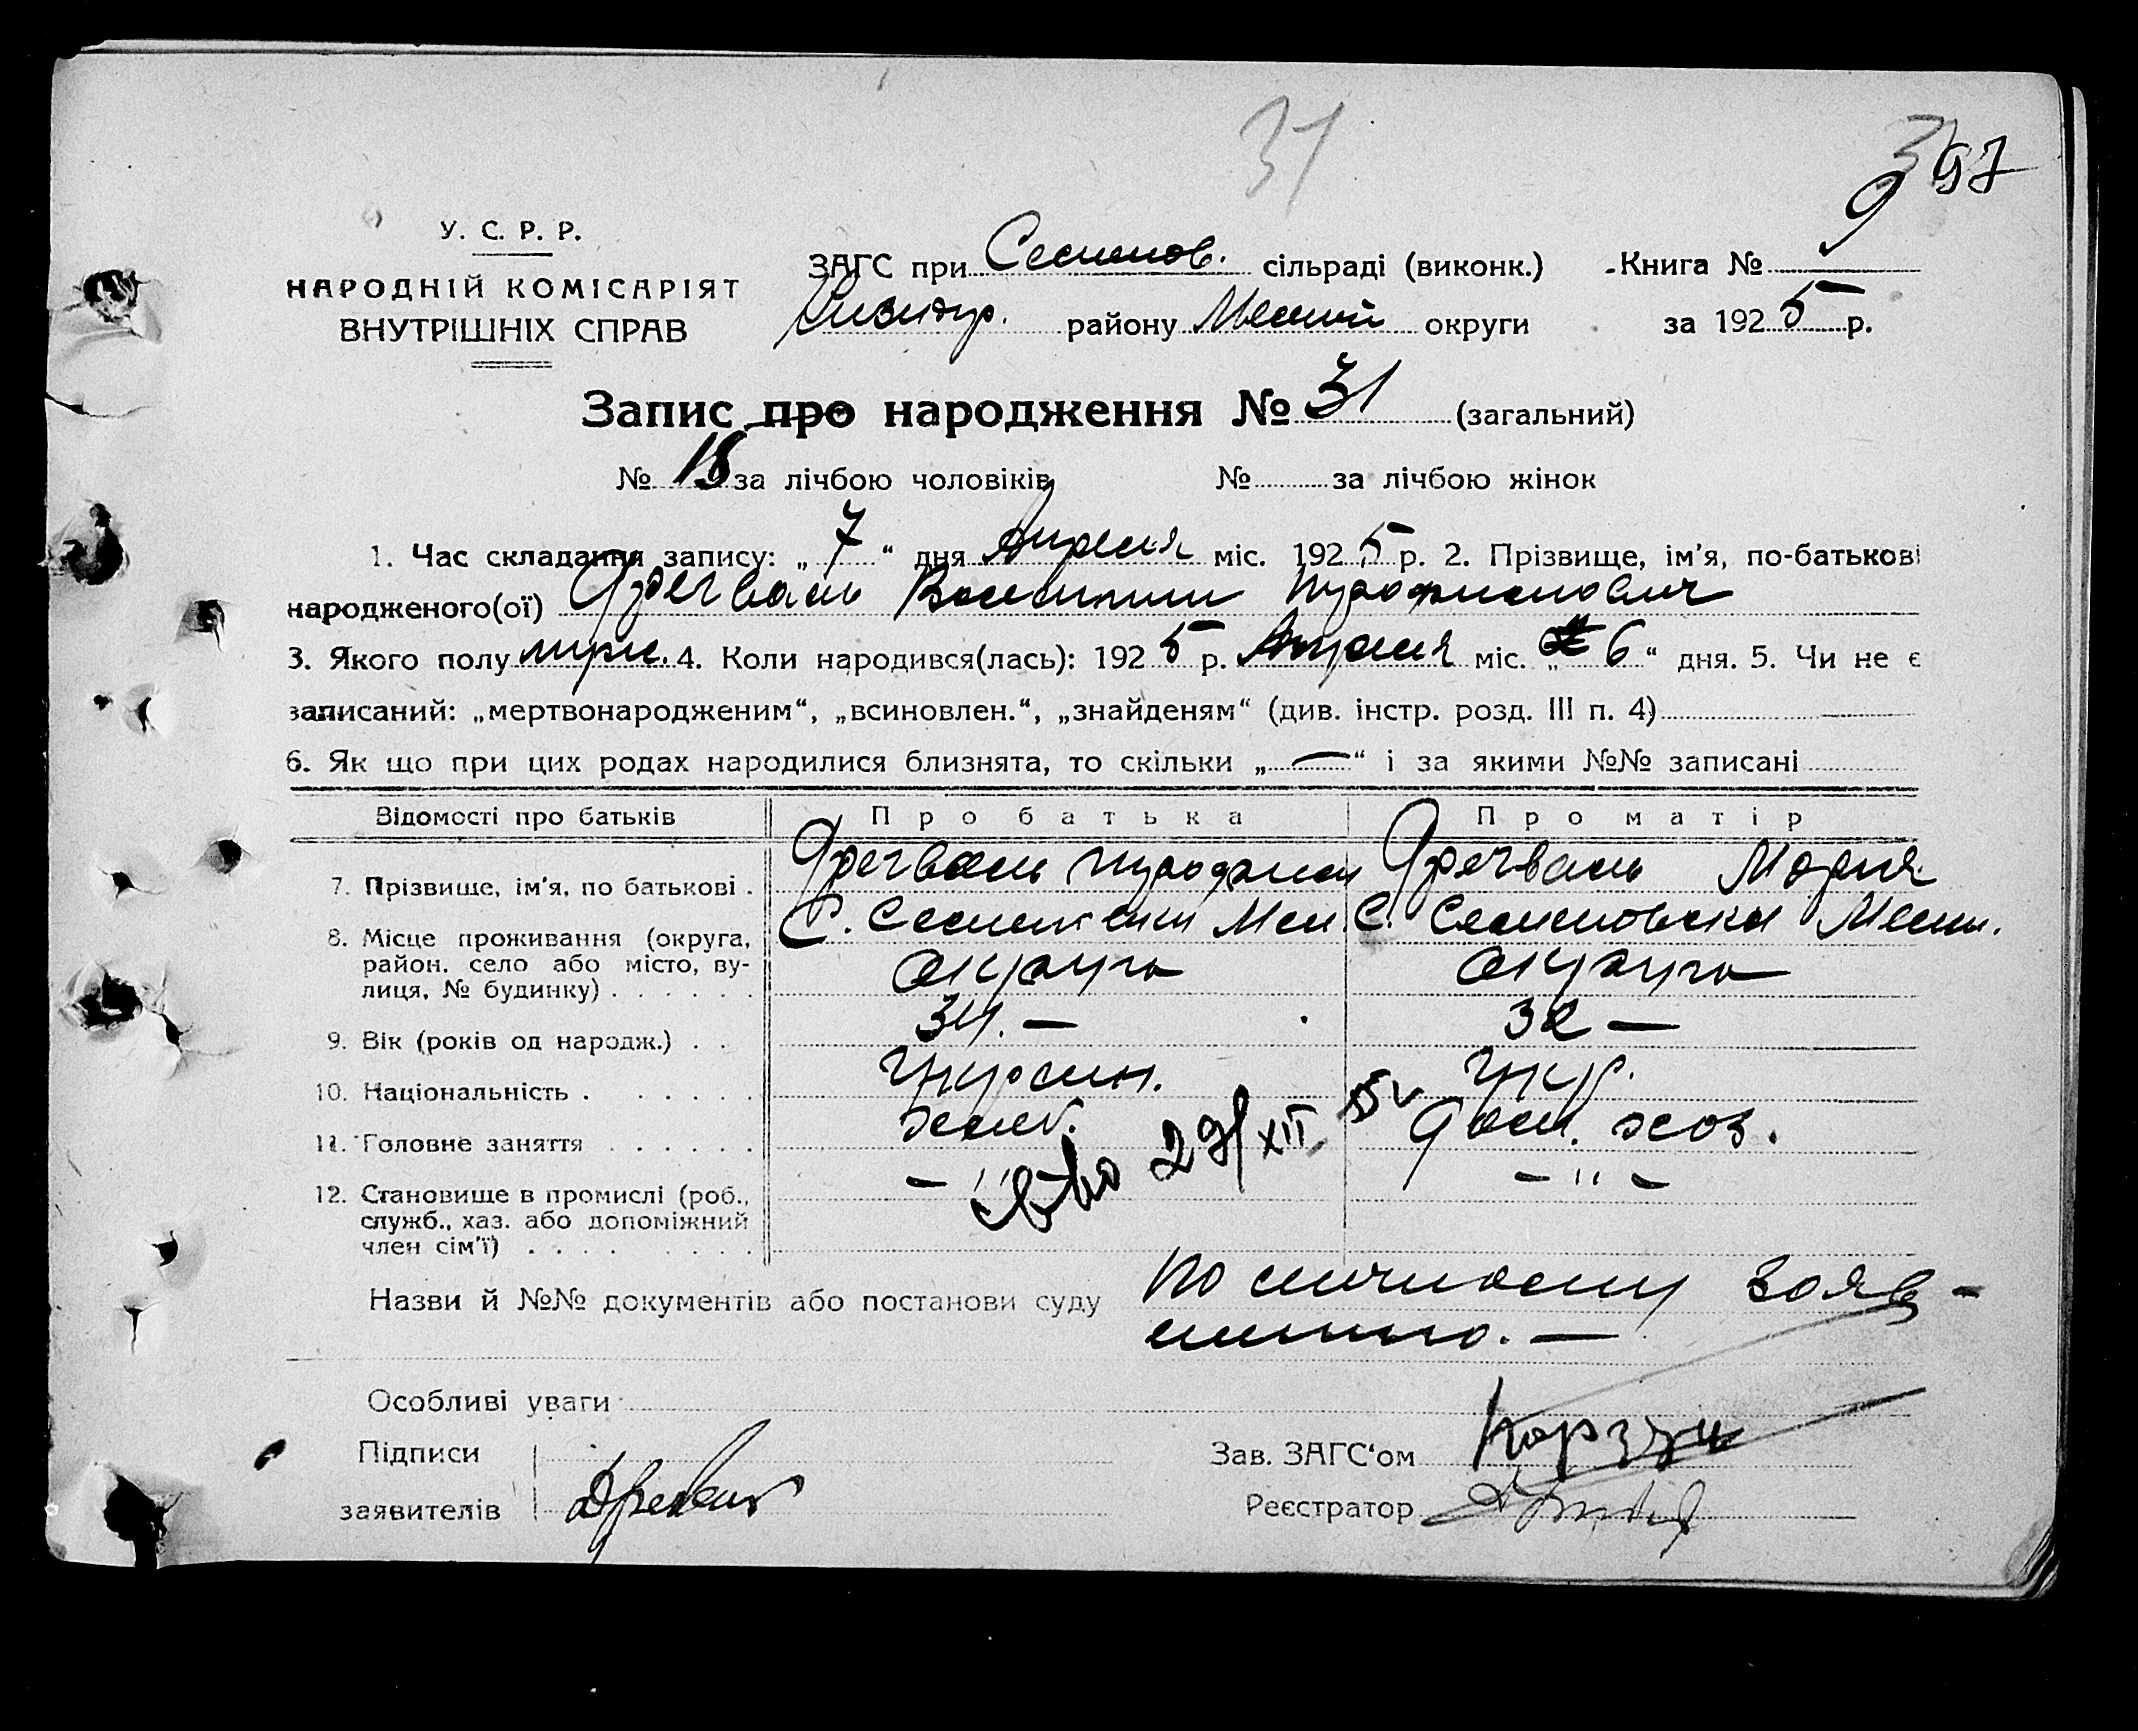 31
397
У. С. Р. Р.
НАРОДНІЙ КОМІСАРІЯТ
ВНУТРІШНІХ СПРАВ
ЗАГС при Семенов. сільраді (виконк.) Книга № 9
району округи за 1925 р.
Запис про народження № 31 (загальний)
№ 18 за лічбою чоловіків № за лічбою жінок
1. Час складання запису: „7“ дня Апреля міс. 1925 р. 2. Прізвище, ім'я, по-батькові
народженого(ої) Дречваль
3. Якого полу муж. 4. Коли народився(лась): 1925 р. Апреля міс. „6“ дня. 5. Чи не є
записаний: „мертвонародженим“, „всиновлен.“, „знайденям“ (див. інстр. розд. III п. 4)
6. Як що при цих родах народилися близнята, то скільки „—“ і за якими №№ записані
Відомості про батьків Про батька Про матір
7. Прізвище, ім'я, по батькові . Дречваль Дречваль Мария
8. Місце проживання (округа, С. С. Семеновка
район. село або місто, ву- округа округа
лиця, № будинку) . . . . . .
9. Вік (років од народж.) . . 34. — 32 —
10. Національність . . . . . . Украин. Укр.
11. Головне заняття . . . . . . хлеб. Дом. хоз.
12. Становище в промислі (роб., — " — — " —
служб., хаз. або допоміжний
член сім'ї) . . . . . . . .
29/XII
Назви й №№ документів або постанови суду По личному заяв-
лению. —
Особливі уваги
Підписи Зав. ЗАГС‘ом
заявителів Реєстратор